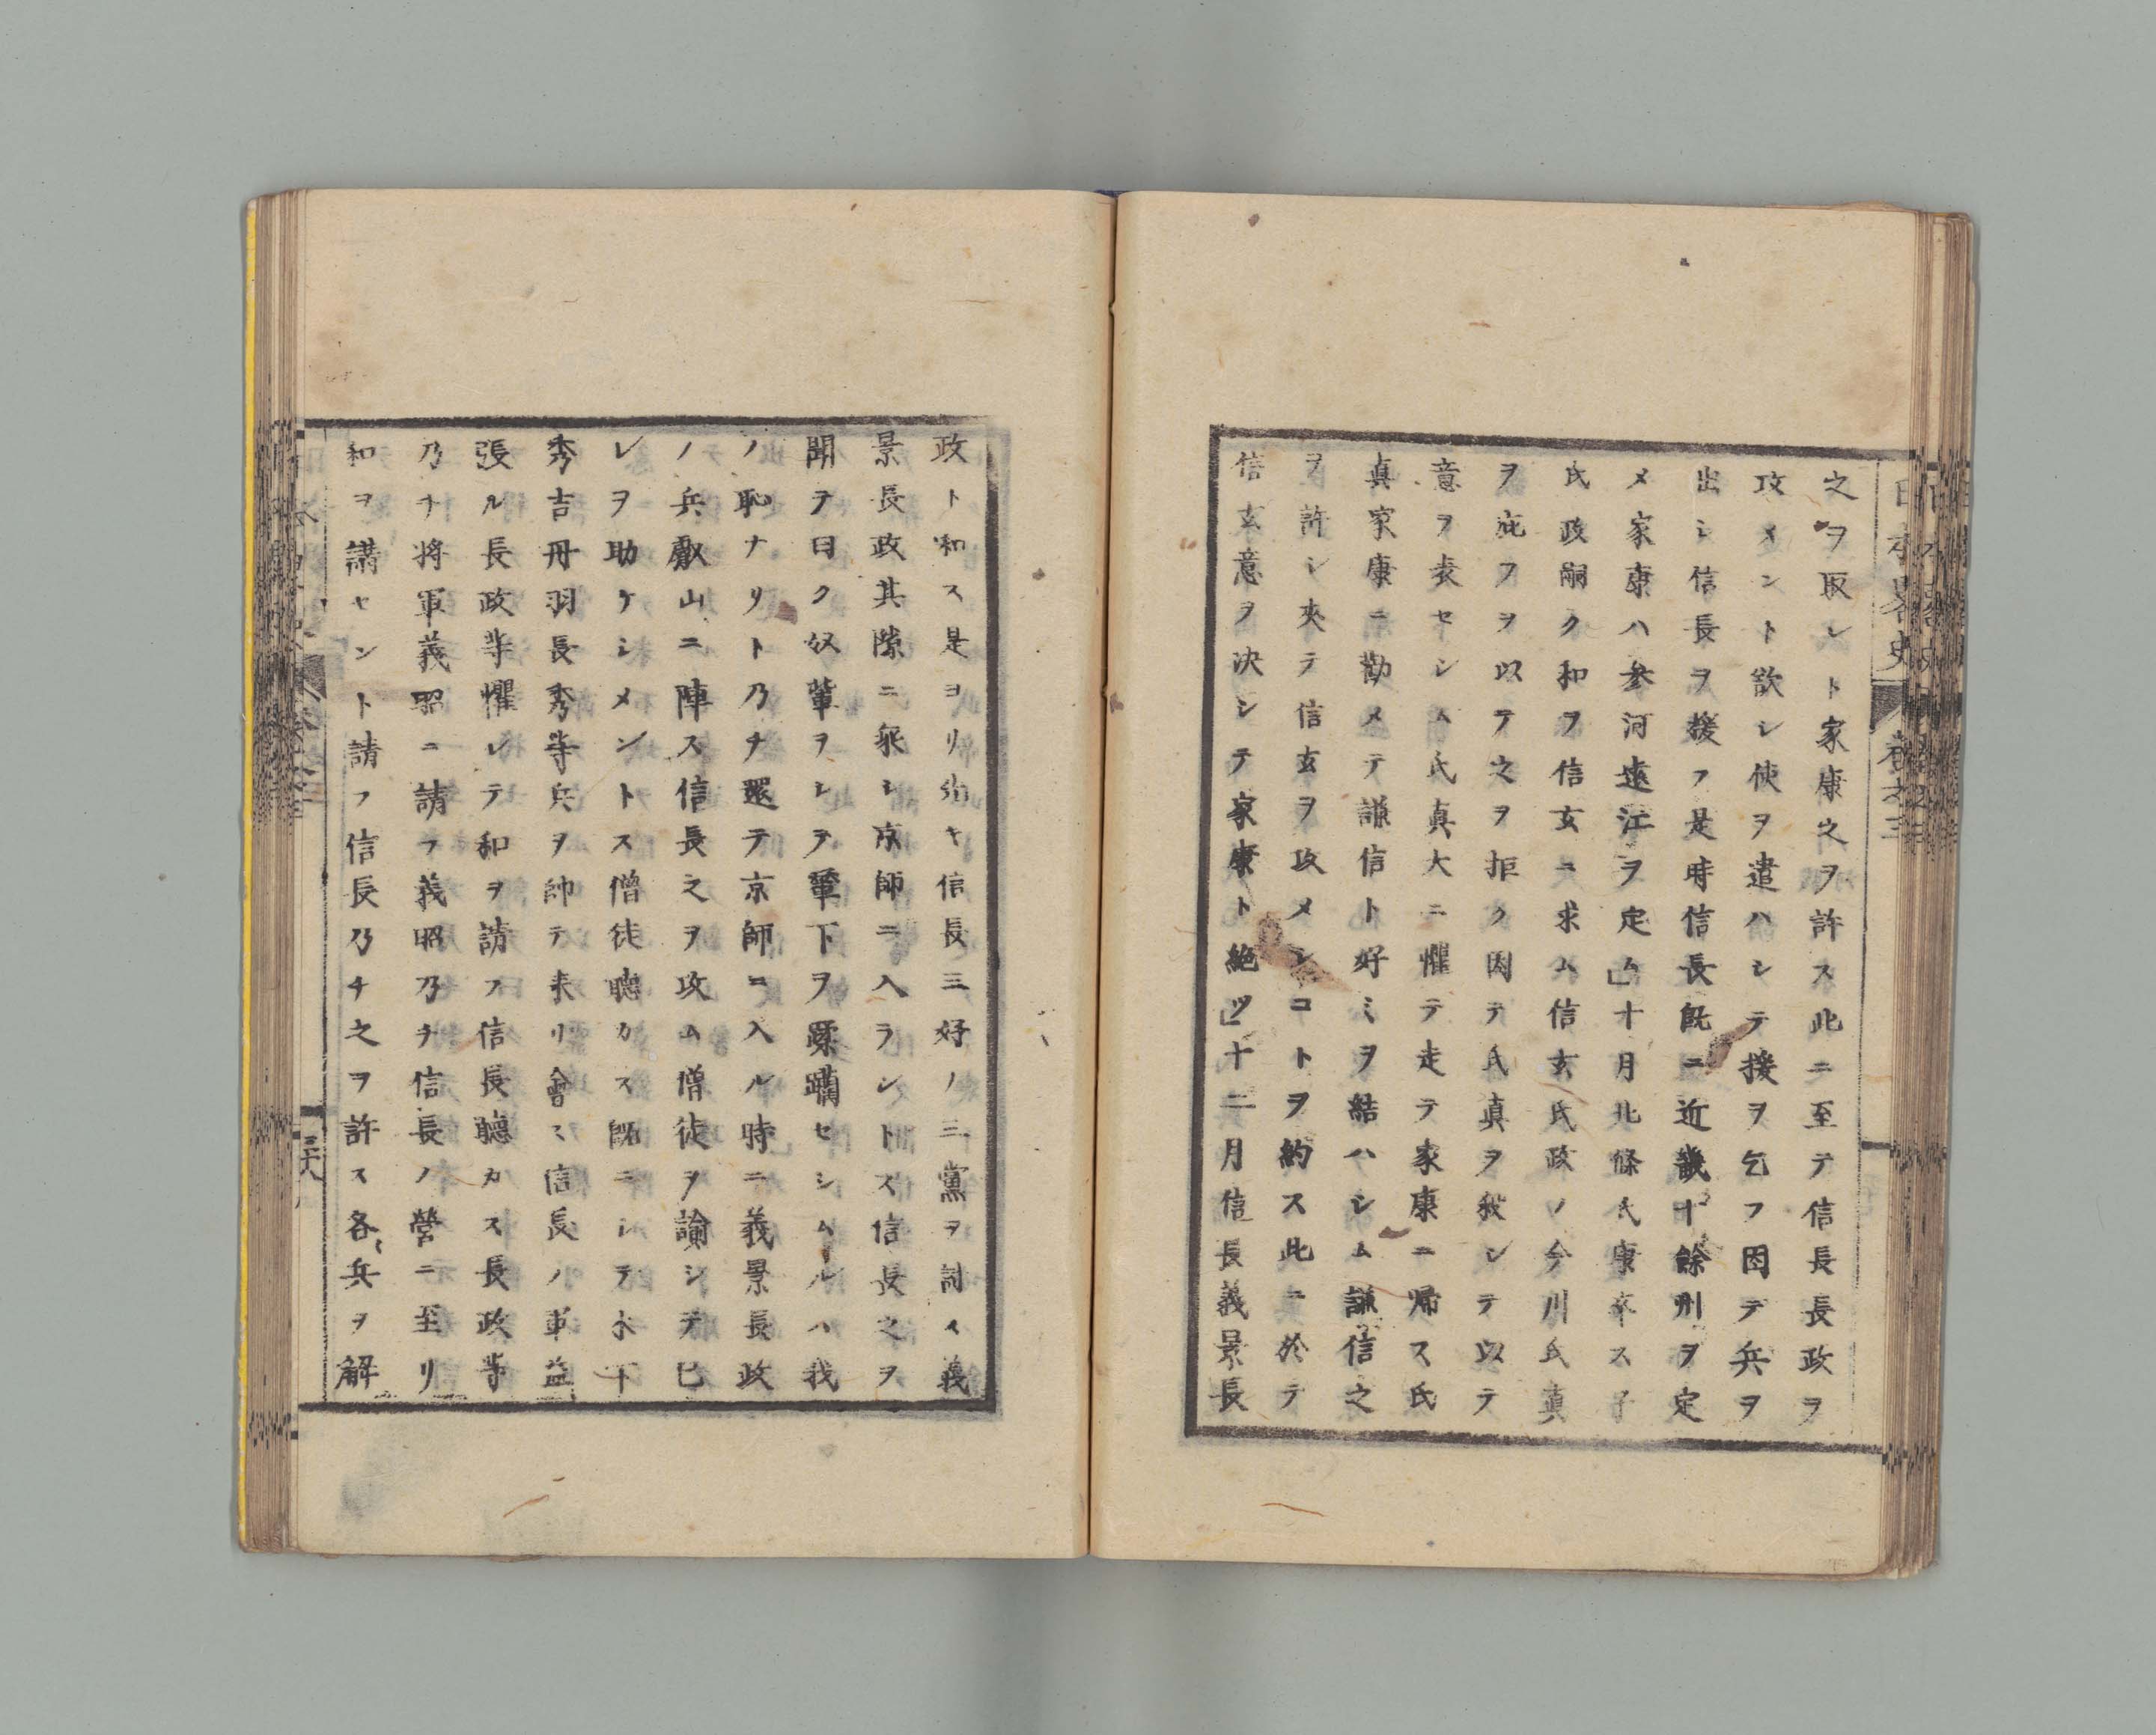 日本畧史 卷之三
之ヲ取レト家康之ヲ許ス此ニ至テ信長長政ヲ
攻メント欲シ使ヲ遣ハシテ援ヲ乞フ因テ兵ヲ
出シ信長ヲ援フ是時信長既ニ近畿十餘州ヲ定
メ家康ハ參河遠江ヲ定ム」十月北條氏康卒ス子
氏政嗣ク和ヲ信玄ニ求ム信玄氏政ノ今川氏真
ヲ庇フヲ以テ之ヲ拒ク因テ氏真ヲ殺シテ以テ
意ヲ表セシム氏真大ニ懼テ走テ家康ニ帰ス氏
真家康ニ勸メテ謙信ト好ミヲ結ハシム謙信之
ヲ許シ夾テ信玄ヲ攻メンコトヲ約ス此ニ於テ
信玄意ヲ决シテ家康ト絶ツ」十二月信長義景長
政ト和ス是ヨリ先キ信長三好ノ三黨ヲ討イ義
景長政其隙ニ乘シ京師ニ入ラントス信長之ヲ
聞ヲ曰ク奴輩ヲシテ輦下ヲ蹂躪セシムルハ我
ノ恥ナリト乃チ還テ京師ニ入ル時ニ義景長政
ノ兵叡山ニ陣ス信長之ヲ攻ム僧徒ヲ諭シテ已
レヲ助ケシメントス僧徒聴カス既ニシテ木下
秀吉丹羽長秀等兵ヲ帥テ来リ會ス信長ノ軍益
張ル長政等懼レテ和ヲ請フ信長聽カス長政等
乃チ将軍義昭ニ請フ義昭乃チ信長ノ營ニ至リ
和ヲ講セント請フ信長乃チ之ヲ許ス各兵ヲ解